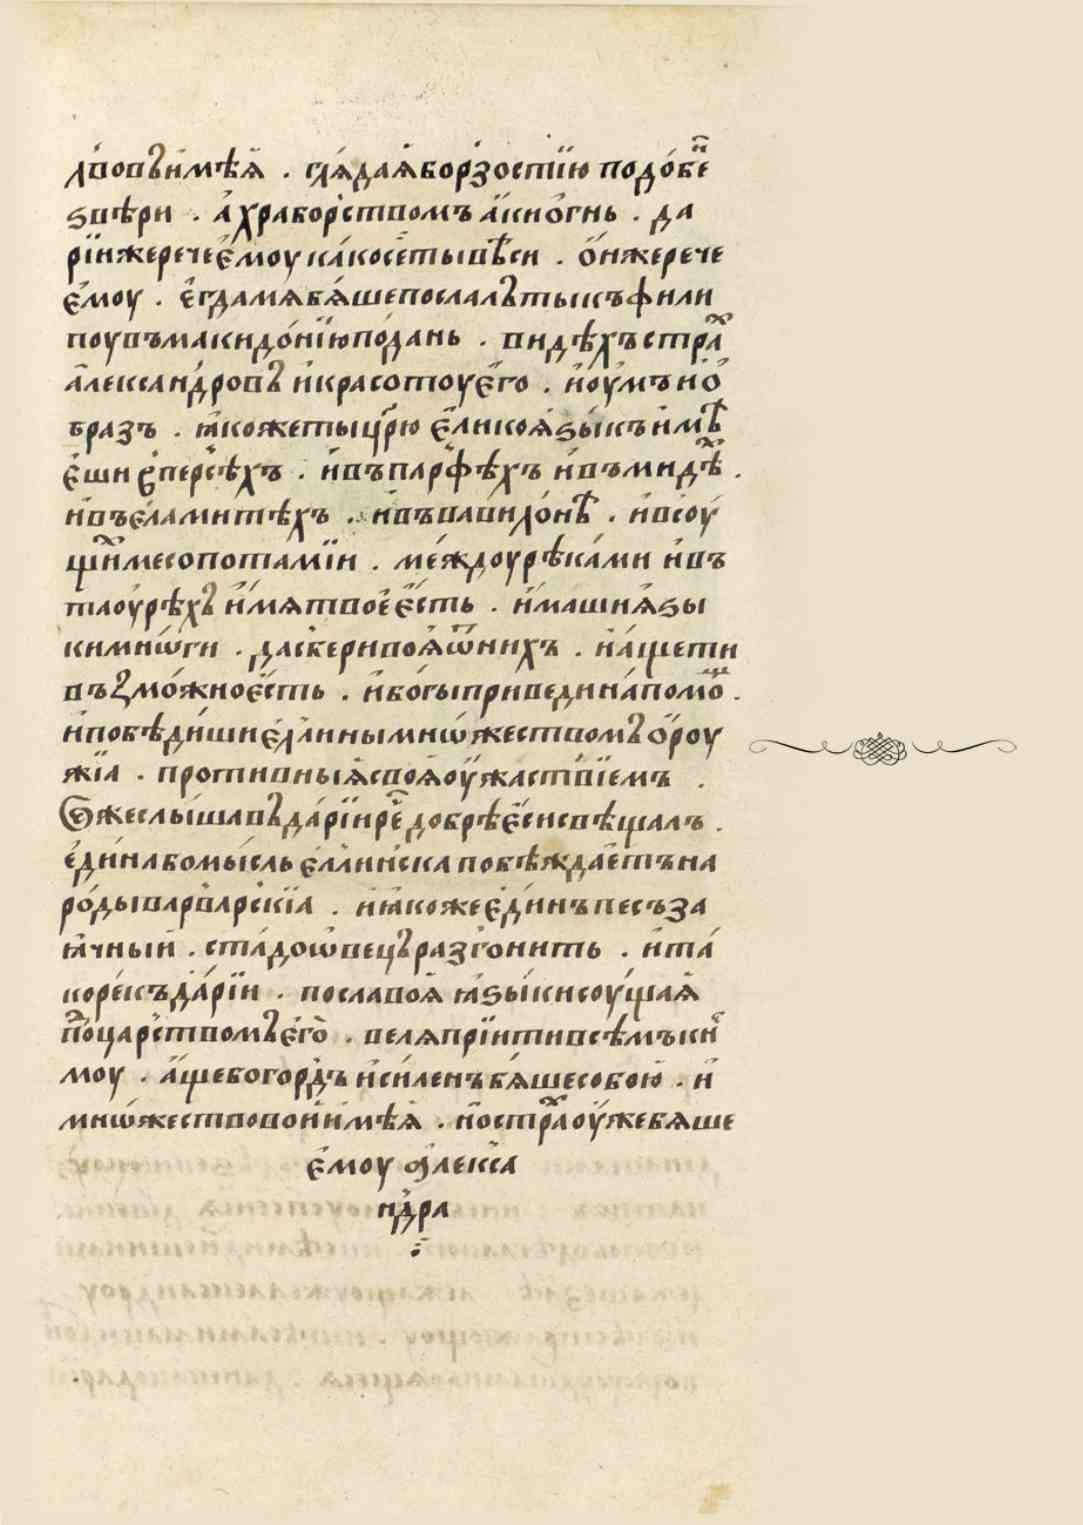 лвовъ имѣѧ . глѧдаѧ борзостїю подобн҃е
ѕвѣри . а храборьствомъ аки огнь . да
рїи же рече ємоу како се ты вѣси . он же рече
ємоу . єгда мѧ бѧше послалъ ты къ фили
поу въ макидонїю по дань . видѣхъ стра
александровъ и красотоу єго . и оумъ и о
бразъ . ꙗкоже ты црю єлико ѧѕыкъ имѣ
єши в персѣхъ . и въ парфѣхъ и въ мидѣ .
и въ єламитѣхъ . и въ вавилонѣ . и в соу
щи месопотамїи . междоу рѣками и въ
таоурѣхъ имѧ твоє єсть . имаши ѧѕы
ки мнѡги . да сбери воѧ ѿ нихъ . и аще ти
възможно єсть . и богы приведи на помо .
и побѣдиши єллины мнѡжествомъ ороу
жїа . противныѧ своѧ оужаствїємъ .
Се же слышавъ дарїи ре добрѣ єси свѣщалъ .
єдина бо мысль єллинска побѣждаєтъ на
роды варварскїа . и ꙗкоже єдинъ песъ за
ѧчный . стадо ѡвецъ разгонить . и та
ко рек дарїи . посла воѧ ꙗѕыки соущаѧ
по царствомъ єго . велѧ прїити всѣмъ к н
моу . аще бо гордъ и силенъ бѧше собою . и
мнѡжество вои имѣѧ . но стра оуже бѧше
ємоу алекса
ндра